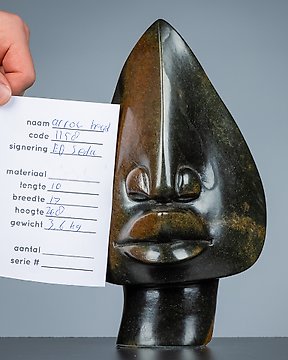 naam
code 1198
signering
materiaal
lengte 10
breedte 17
hoogte 28
gewicht 3,6 kg
aantal
serie #